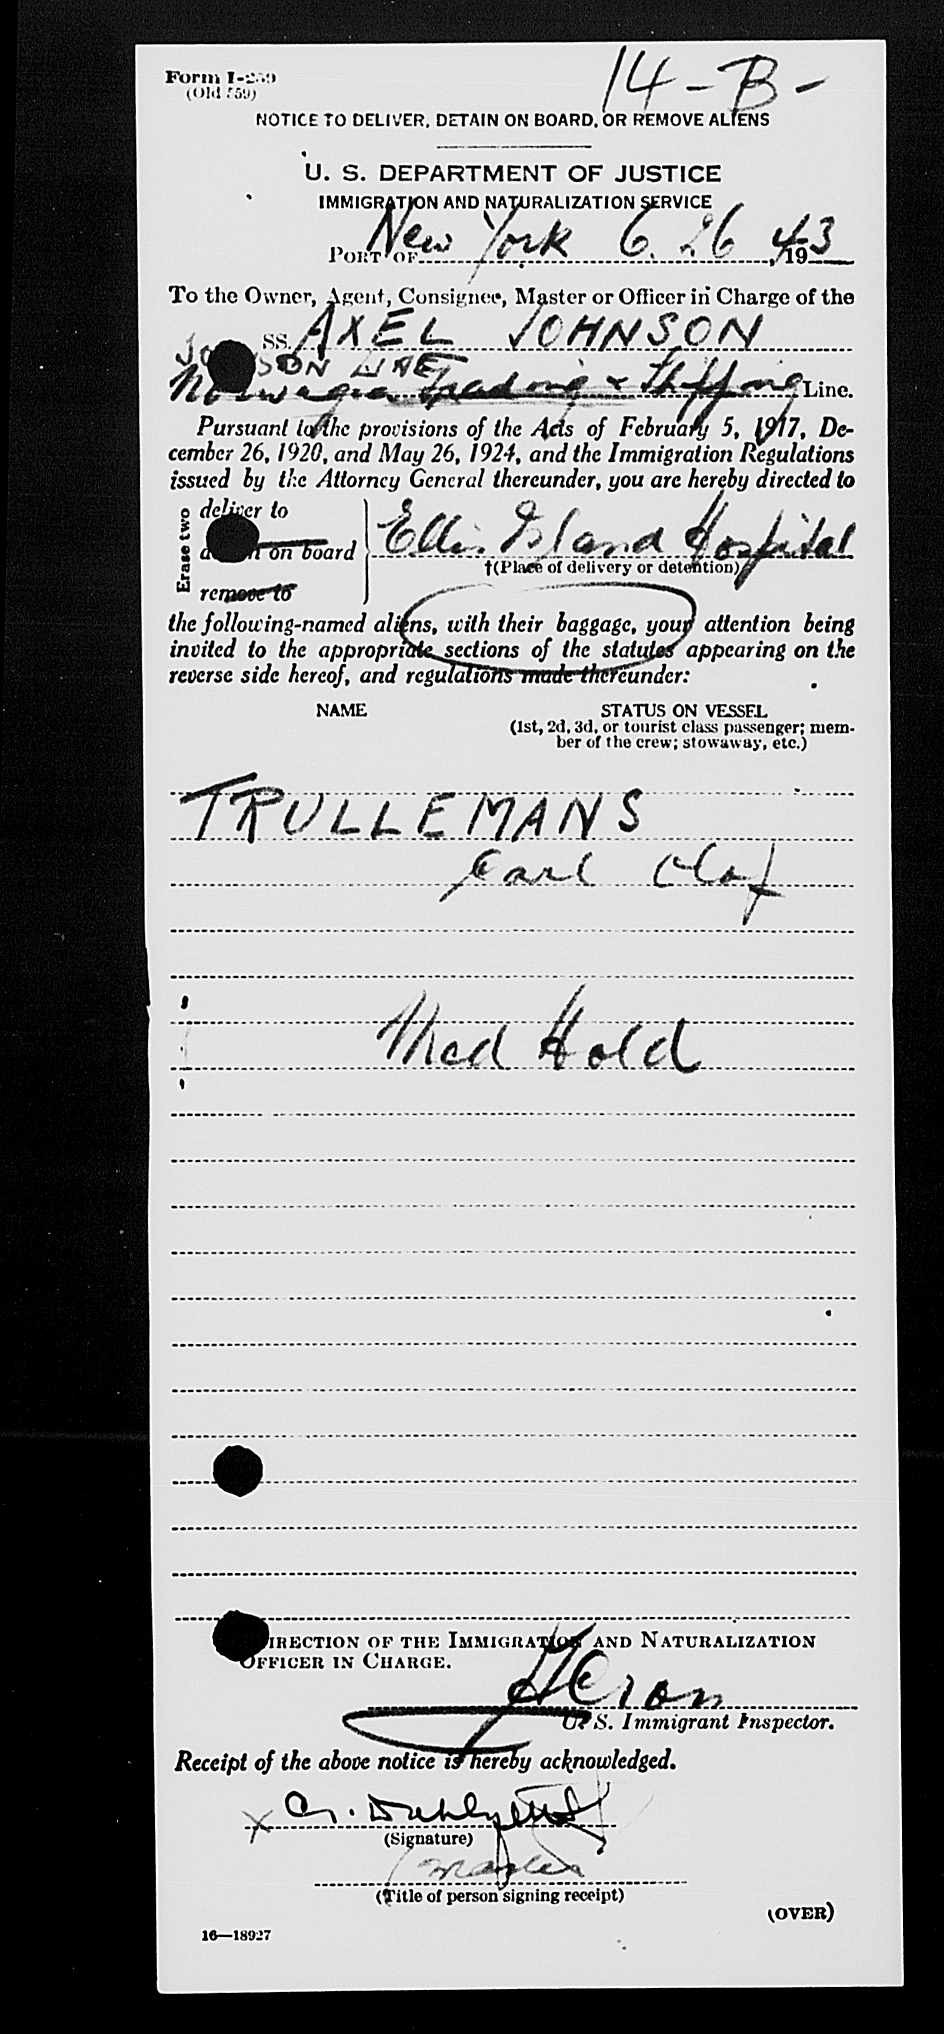 Form I-259
(Old 559)
14-B-
NOTICE TO DELIVER, DETAIN ON BOARD, OR REMOVE ALIENS
U. S. DEPARTMENT OF JUSTICE
IMMIGRATION AND NATURALIZATION SERVICE
PORT OF New York 6. 26, 1943
To the Owner, Agent, Consignee, Master or Officer in Charge of the
SS. AXEL JOHNSON
JOHNSON LINE
Norwegian Trading & Shipping Line.
Pursuant to the provisions of the Acts of February 5, 1917, De-
cember 26, 1920, and May 26, 1924, and the Immigration Regulations
issued by the Attorney General thereunder, you are hereby directed to
Erase two
deliver to
on board
remove to
Ellis Island Hospital
†(Place of delivery or detention)
the following-named aliens, with their baggage, your attention being
invited to the appropriate sections of the statutes appearing on the
reverse side hereof, and regulations made thereunder:
NAME
STATUS ON VESSEL
(1st, 2d, 3d, or tourist class passenger; mem-
ber of the crew; stowaway, etc.)
TRULLEMANS
Carl Olof
Med Hold
DIRECTION OF THE IMMIGRATION AND NATURALIZATION
OFFICER IN CHARGE.
U. S. Immigrant Inspector.
Receipt of the above notice is hereby acknowledged.
X
(Signature)
Master
(Title of person signing receipt)
(OVER)
16—18927